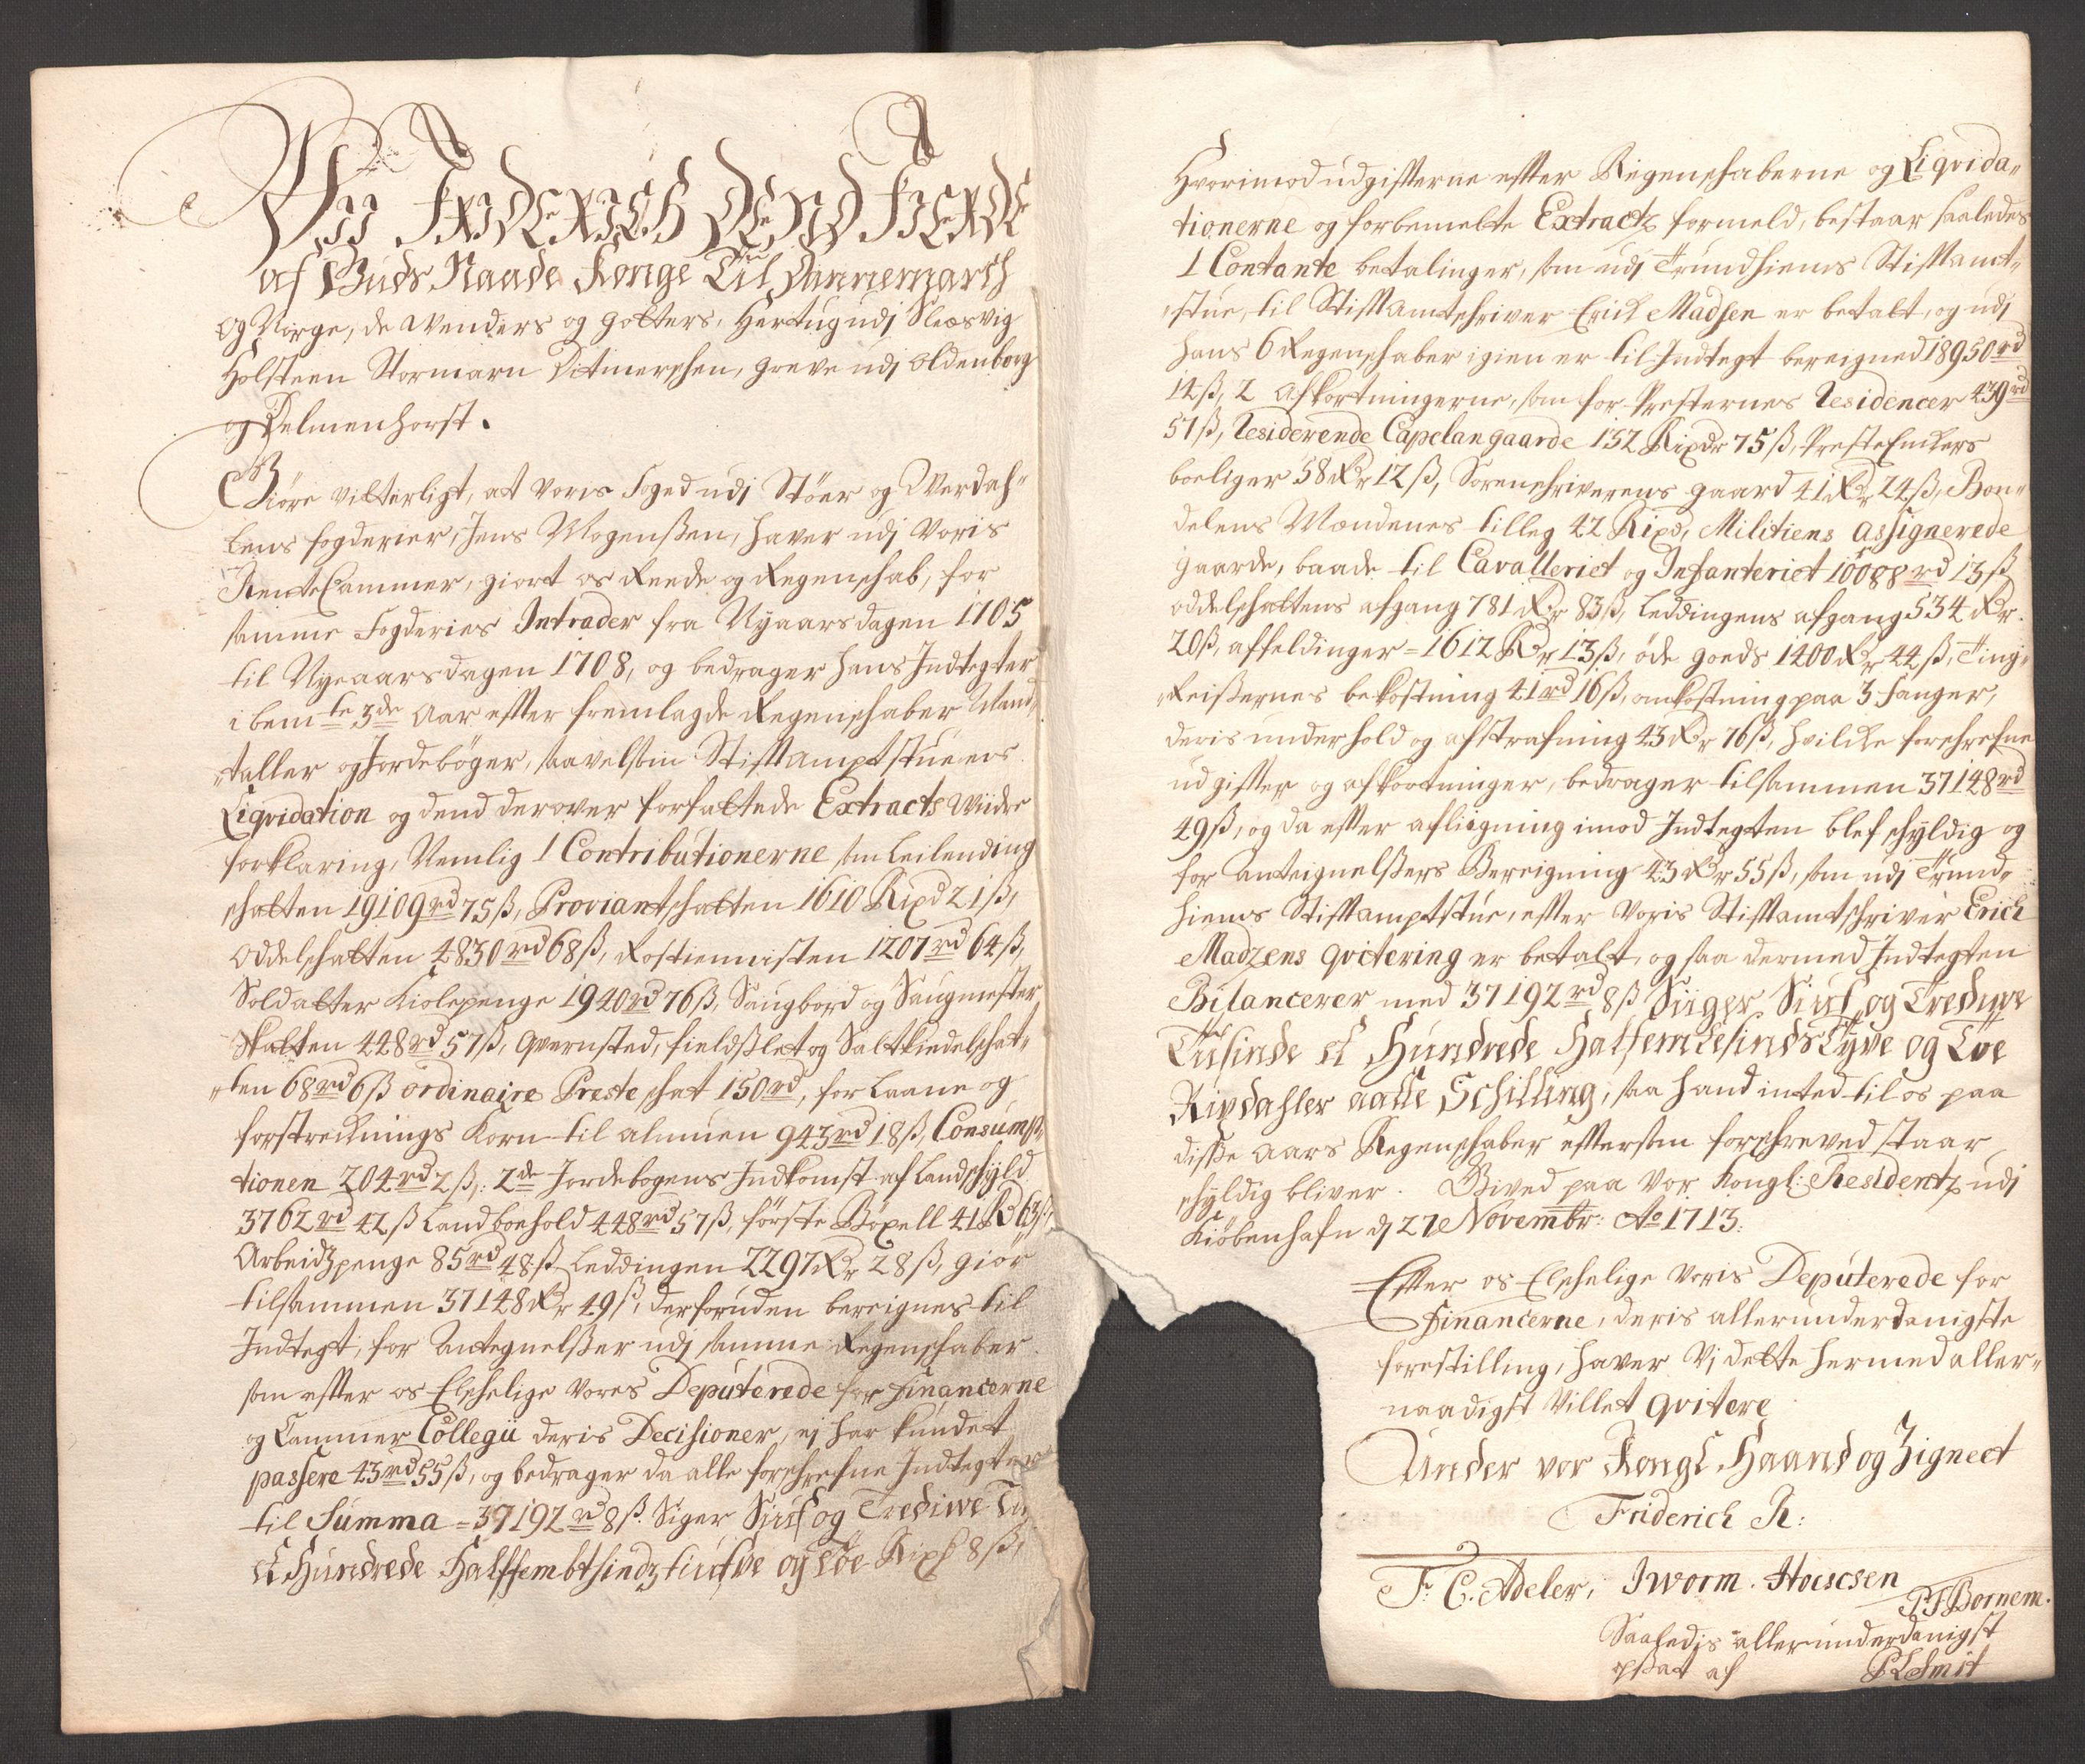 Wii Friderich dend Fierde
af Guds Naade Konge Til Dannemarch
og Norge, de Wenders og Gotters, Hertug udj Slesvig
Holsteen Stormarn Ditmerschen, Greve udj Oldenborg
og Delmenhorst.
Giöre vitterligt, at Voris Foged udj Stöer og Werdah„
lens fogderier, Jens Mogenßen, haver udj Voris
RenteCammer, giort os Reede og Regenschab, for
samme Fogderies Intrader fra Nyaarsdagen 1705
til Nyeaarsdagen 1708, og bedrager hans Indtegter
i bemte 3de Aar efter fremlagde Regenschaber Mand„
„taller og Jordebøger, saavelsom Stiftamptstuens
Liqvidation og dend derover forfattede Extracts Wiidre
forklaring, Nemlig 1 Contributionerne som Leilending
schatten 19109rd 75ß, Proviantschatten 1610 Rixd 21ß,
Oddelschatten 4830rd 68ß, Rostienisten 1207rd 64ß,
Soldatter Kiolepenge 1940rd 76ß, Saugbord og Saugmester
Skatten 448rd 57ß, Qvernsted, fieldßlet og Saltkiedelschat„
„ten 68rd 6ß ordinaire Preste schat 150rd, for Laane og
forstrechnings Korn til almuen 943rd 18ß, Consump„
tionen 204rd 2ß,: 2de Jordebogens Indkomst af Landschyld
3762rd 42ß Landbohold 448rd 57ß, förste Böxell 41Rd 63ß,
Arbeidzpenge 85rd 48ß Leddingen 2297Rdr 28ß, giör
tilsammen 37148Rdr 49ß, derforuden bereignes til
Indtegt, for Antegnelßer udj samme Regenschaber
som efter os Elschelige Vores Deputerede for Financerne
og Cammer Collegii deris Decisioner, ej har kundet
passere 43rd 55ß, og bedrager da alle forschrefne Indtegter
til Summa = 37192rd 8ß. Siger Siuf og Trediwe Tu
et Hundrede Halffembthindztiufve og toe Rixd 8ß,
Hvorimod udgifterne efter Regenschaberne og Liqvida„
tionerne og forbemelte Extractz formeld, bestaar saaledes
1 Contante betalinger, som udj Trundhiems Stiftamt„
„stue, til Stiftamtschriver Erich Madsen er betalt, og udj
hans 6 Regenschaber igien er til Indtegt bereigned 18950rd
14ß, 2 Afkortningerne, som for Presternes Residencer 439rd
51ß, Residerende Capelangaarde 132 Rixdr 75ß, PresteEnkers
boeliger 58Rdr 12ß, Sorenschriverens gaard 41Rdr 24ß, Bon„
delens Mændenes tilleg 42 Rixd, Militiens assignerede
gaarde, baade til Cavalleriet og Infanteriet 10088rd 13ß
Oddelschattens afgang 781Rdr 83ß, Leddingens afgang 534Rdr.
20ß, affeldinger = 1612Rdr 13ß, öde goeds 1400Rdr 44ß, Ting„
„Reißernes bekostning 41rd 16ß, omkostning paa 3 fanger,
deris underhold og afstrafning 43Rdr 76ß, hvilcke forschrefne
udgifter og afkortninger, bedrager tilsammen 37148rd
49ß, og da efter aflligning imod Indtegten blef schyldig og
for Anteignelßers Bereigning 43Rdr 55ß, som udj Trund„
hiems Stiftamptstue, efter Voris Stiftamtschriver Erich
Madzens qvitering er betalt, og saa dermed Indtegten
Bilancerer med 37192rd 8ß Siiger Siuf og Trediwe
Tusinde et Hundrede Halfemtesinds Tyve og Toe
Rixdahler aatte Schilling, saa hand inted til os paa
disse Aars Regenschaber eftersom forschreved staar
schyldig bliver. Gived paa Vor Kongl: Residentz udj
Kiöbenhafn dj 27 Novembr: Ao 1713.
Efter os Elschelige Voris Deputerede for
Financerne, deris allerunderdanigste
forestilling, haver Vj dette hermed aller„
naadigst Villet qvitere
Under vor Kongl Haand og Zigneet
Friderich R:
F. C. Adeler, J worm. Housesen
P F Bornem.
Saaledis allerunderdanigst
opsat af P L Smit